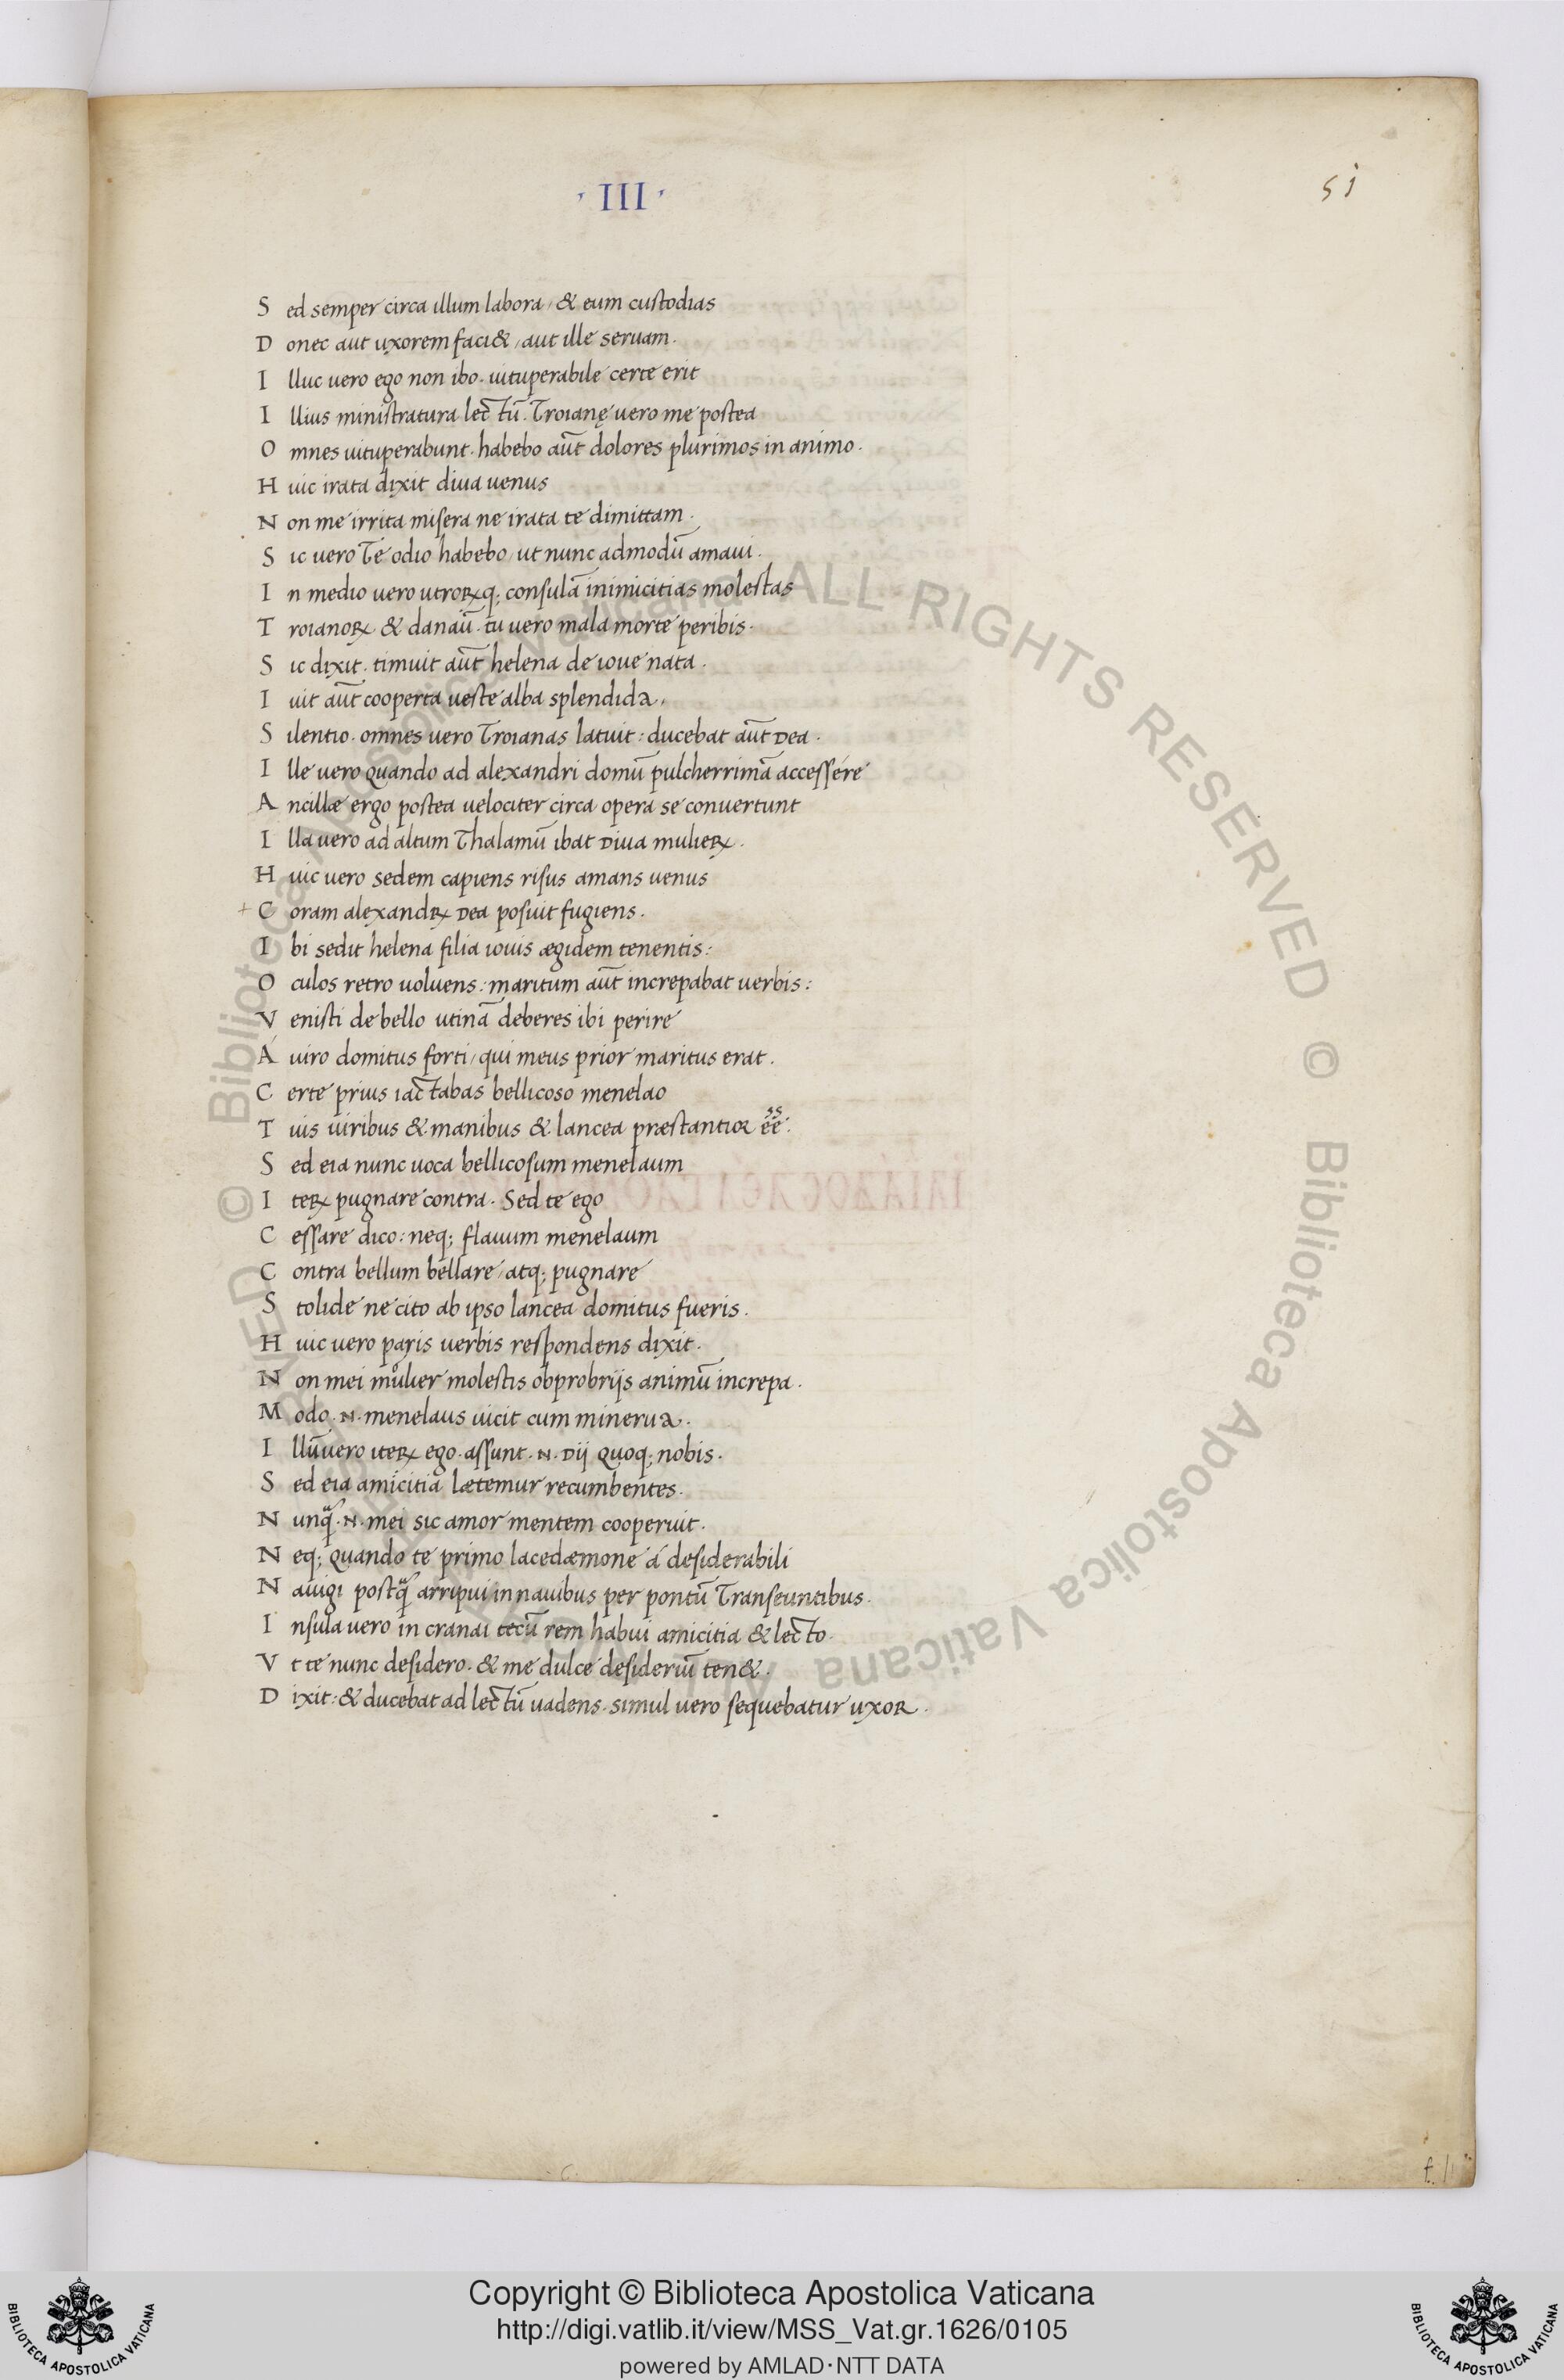 · III ·
51
Sed semper circa illum labora, & eum custodias
Donec aut uxorem faci&, aut ille seruam.
Illuc uero ego non ibo. uituperabile certe erit
Illius ministratura lectū. Troianę uero me postea
Omnes uituperabunt. habebo aūt dolores plurimos in animo.
Huic irata dixit diua uenus
Non me irrita misera ne irata te dimittam.
Sic uero te odio habebo, ut nunc admodū amaui.
In medio uero utroꝝq; consulā inimicitias molestas
Troianoꝝ & danaū. tu uero mala morte peribis.
Sic dixit. timuit aūt helena de ioue nata.
Iuit aūt cooperta ueste alba splendida.
Silentio. omnes uero Troianas latuit: ducebat aūt Dea.
Ille uero quando ad alexandri domū pulcherrimā accessére
Ancillæ ergo postea uelociter circa opera se conuertunt
Illa uero ad altum Thalamū ibat Diua mulieꝝ.
Huic uero sedem capiens risus amans uenus
+ Coram alexandꝝ Dea posuit fugiens.
Ibi sedit helena filia iouis ægidem tenentis:
Oculos retro uoluens: maritum aūt increpabat uerbis:
Venisti de bello utinā deberes ibi perire
Á uiro domitus forti, qui meus prior maritus erat.
Certe prius iactabas bellicoso menelao
Tuis uiribus & manibus & lancea præstantior ēē.
ss
Sed eia nunc uoca bellicosum menelaum
Iteꝝ pugnare contra. Sed te ego
Cessare dico: neq; flauum menelaum
Contra bellum bellare, atq; pugnare
Stolide ne cito ab ipso lancea domitus fueris.
Huic uero paris uerbis respondens dixit.
Non mei mulier molestis obprobrijs animū increpa.
Modo .N. menelaus uicit cum minerua.
Illū uero iteꝝ ego. assunt .N. Dij quoq; nobis.
Sed eia amicitia lætemur recumbentes.
Nunq̃ .N. mei sic amor mentem cooperuit.
Neq; quando te primo lacedæmone á desiderabili
Nauigi postq̃ arripui in nauibus per pontū Transeuntibus.
Insula uero in cranai tecū rem habui amicitia & lecto.
Vt te nunc desidero. & me dulce desideriū ten&.
Dixit: & ducebat ad lectū uadens. simul uero sequebatur uxor.
© Biblioteca Apostolica Vaticana ALL RIGHTS RESERVED © Biblioteca Apostolica Vaticana
Copyright © Biblioteca Apostolica Vaticana
http://digi.vatlib.it/view/MSS_Vat.gr.1626/0105
powered by AMLAD·NTT DATA
BIBLIOTECA APOSTOLICA VATICANA
BIBLIOTECA APOSTOLICA VATICANA